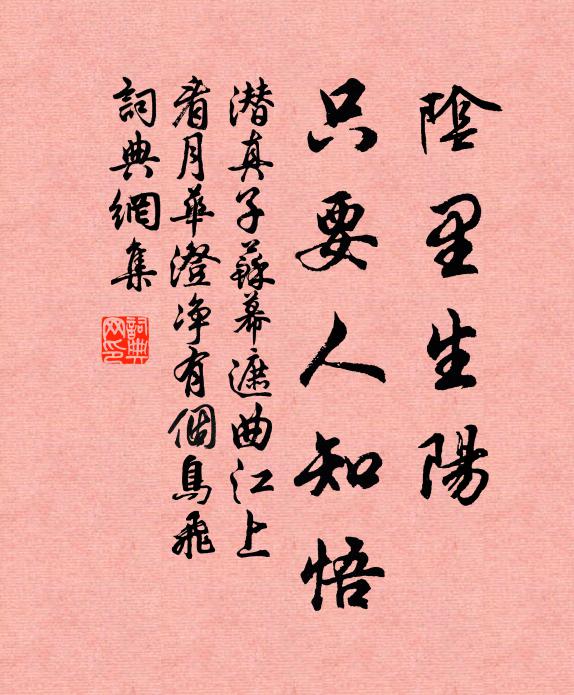 陰里生陽
只要人知悟
潛真子蘇幕遮曲江上
看月華澄净有個鳥飛
詞典網集
詞典网印